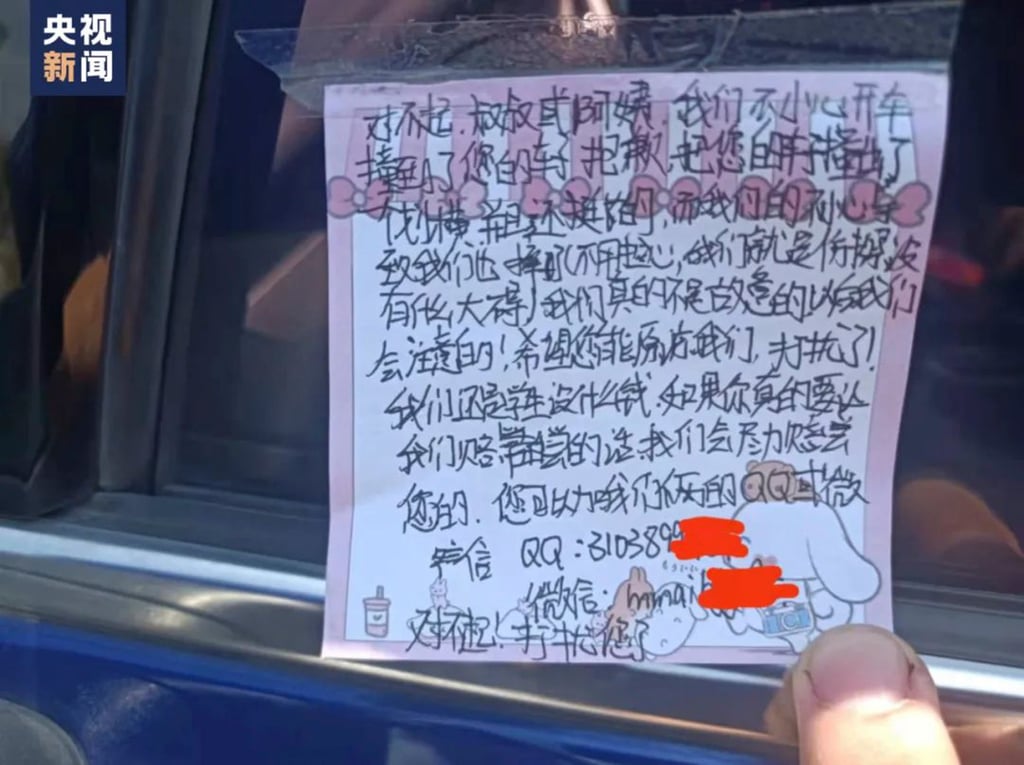 央视
新闻
对不起,叔叔或阿姨,我们不小心开车
撞到了您的车子抱歉,把您的车子撞出了
我们的不小心导
致我们也摔到(不用担心,我们就是你摔没
有什么大碍)我们真的不是故意的以后我们
会注意的!希望您能原谅我们,打扰了!
我们还是学生没什么钱.如果你真的要让
我们赔偿的话,我们会尽力赔偿
您的.您可以加我们的QQ或微
信 QQ:3103899
微信:mmai
对不起!打扰您了